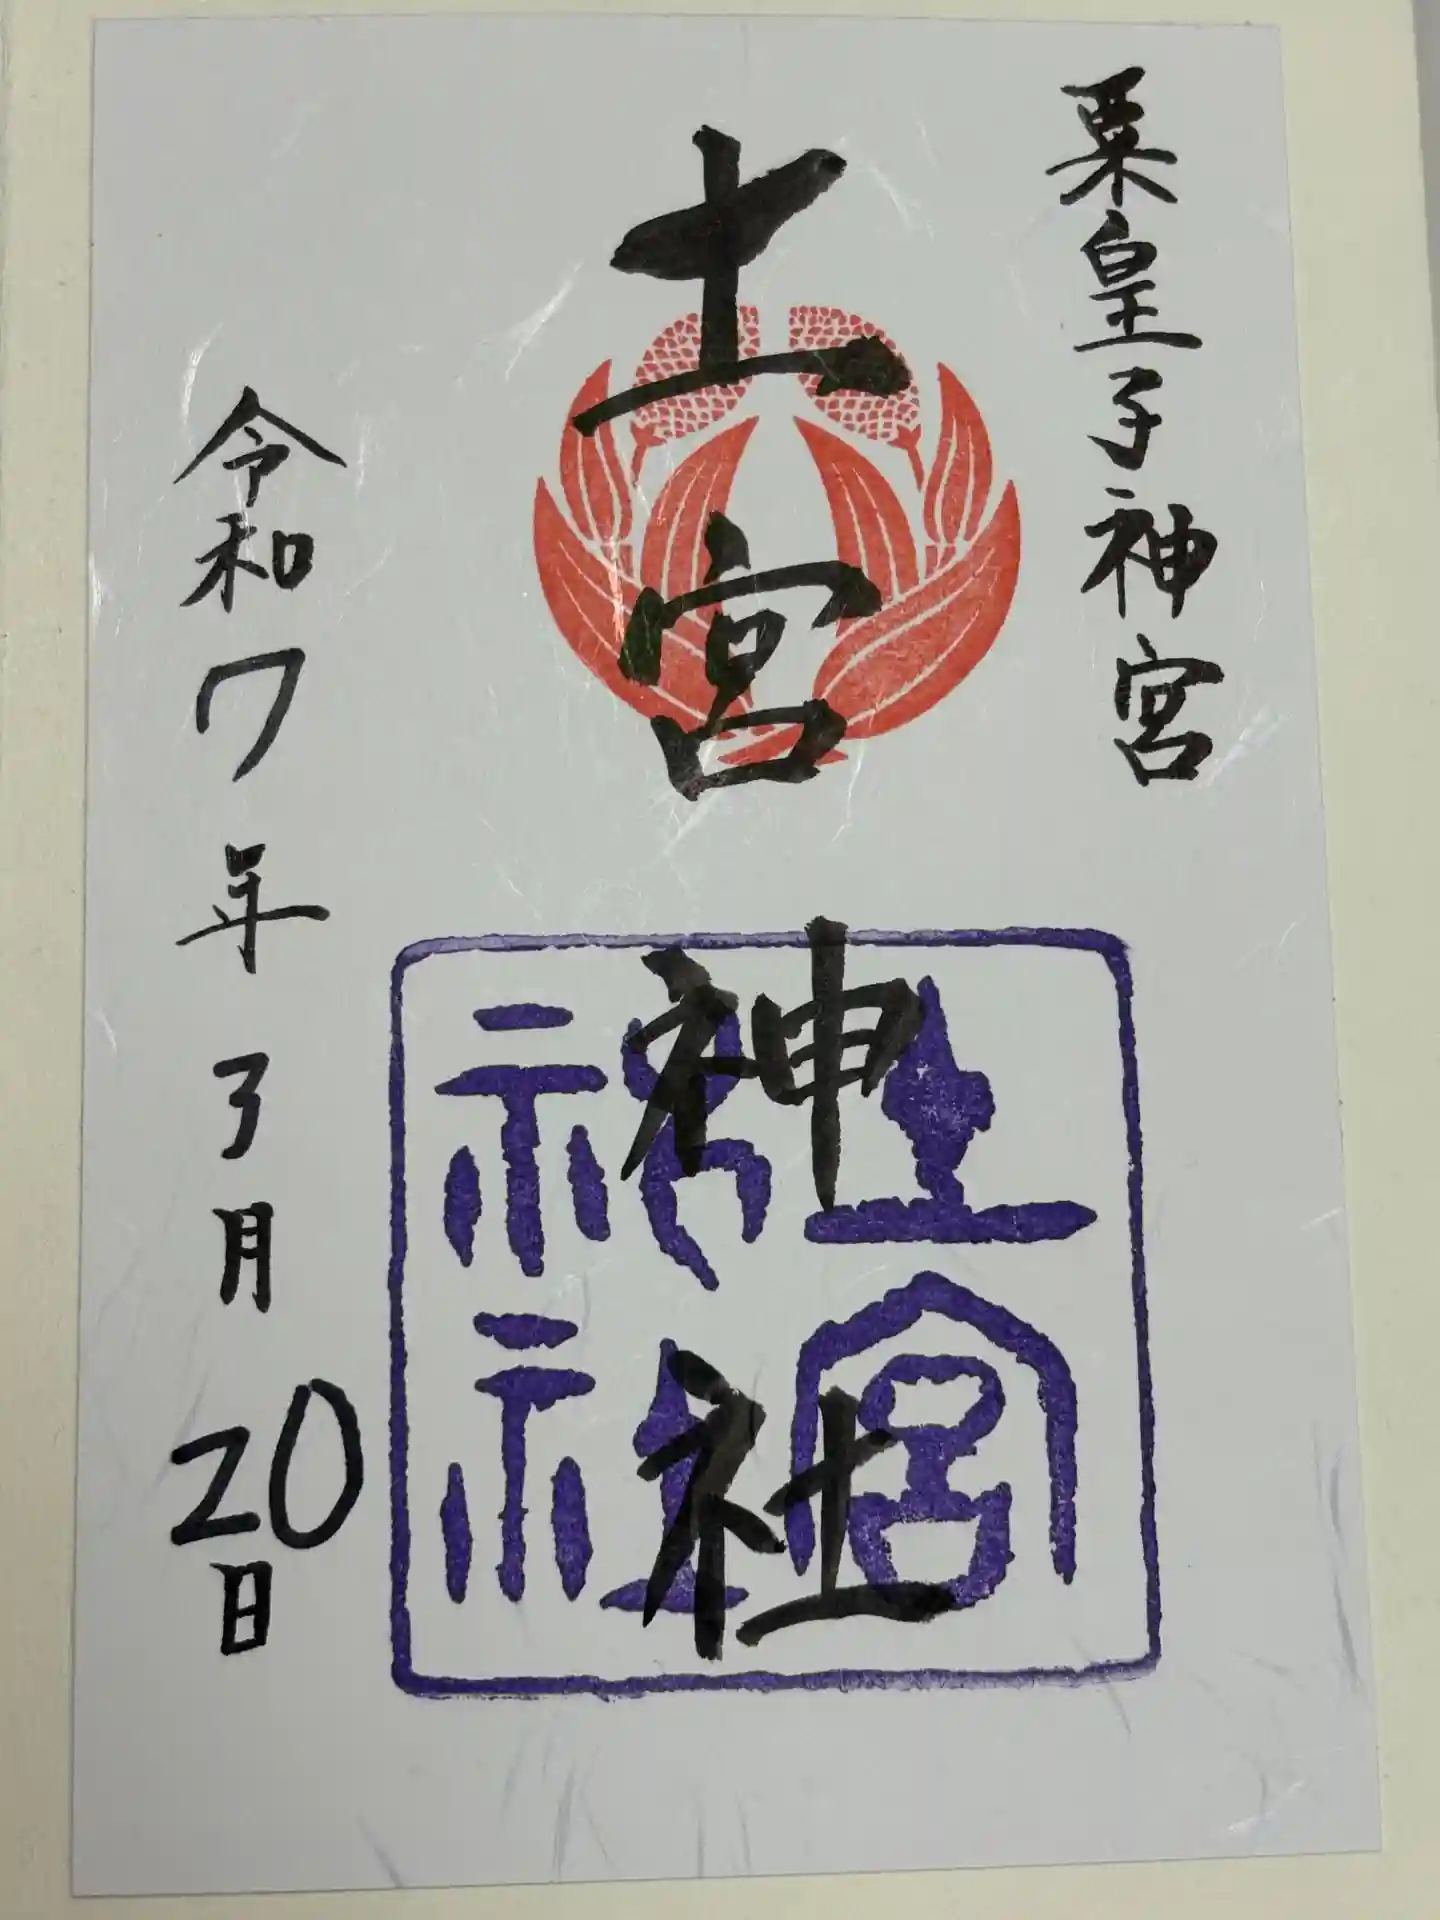 粟皇子神宮
土宮神社
土宮
神社
令和7年3月20日